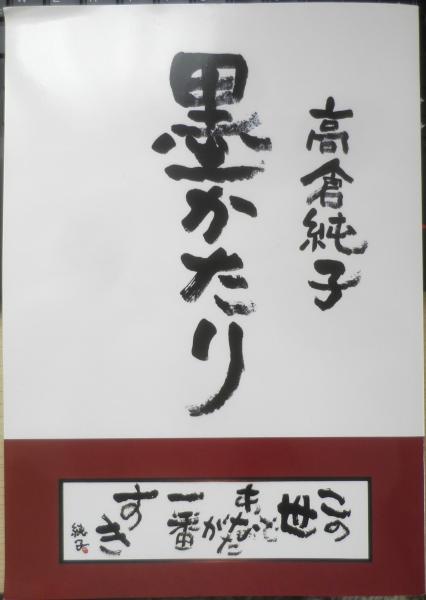 高倉純子
墨かたり
この
世で
あなた
が
一番
すき
純子